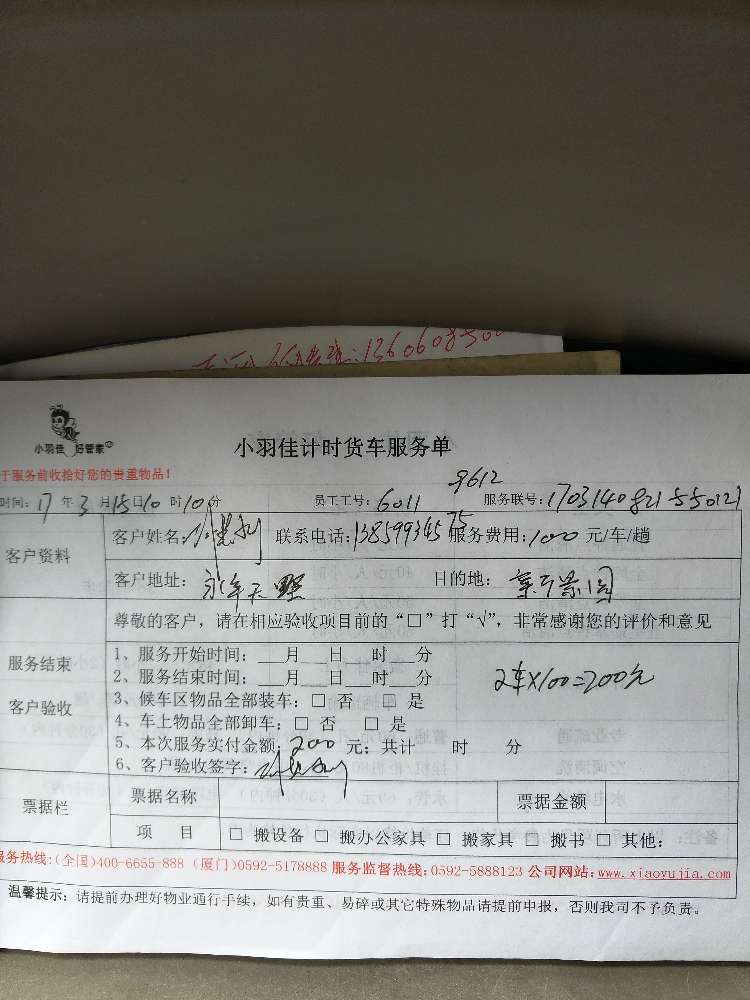 1360608500
小羽佳 好管家
小羽佳计时货车服务单
于服务前收拾好您的贵重物品！
9612
时间：17 年 3 月 15 日 10 时 10 分 员工工号：6011 服务联号：1703140821550121
客户资料
客户姓名： 联系电话：13859934575 服务费用：100 元/车/趟
客户地址：永年天墅 目的地：
尊敬的客户，请在相应验收项目前的“□”打“√”，非常感谢您的评价和意见
服务结束
客户验收
1、服务开始时间：___月___日 时 分
2、服务结束时间：___月___日 时 分
2车×100=200元
3、候车区物品全部装车：□ 否 □ 是
4、车上物品全部卸车：□ 否 □ 是
5、本次服务实付金额：200 元；共计 时 分
6、客户验收签字：
票据栏
票据名称 票据金额
项 目 □ 搬设备 □ 搬办公家具 □ 搬家具 □ 搬书 □ 其他：
服务热线：(全国)400-6655-888 (厦门)0592-5178888 服务监督热线：0592-5888123 公司网站：www.xiaoyujia.com
温馨提示：请提前办理好物业通行手续，如有贵重、易碎或其它特殊物品请提前申报，否则我司不予负责。